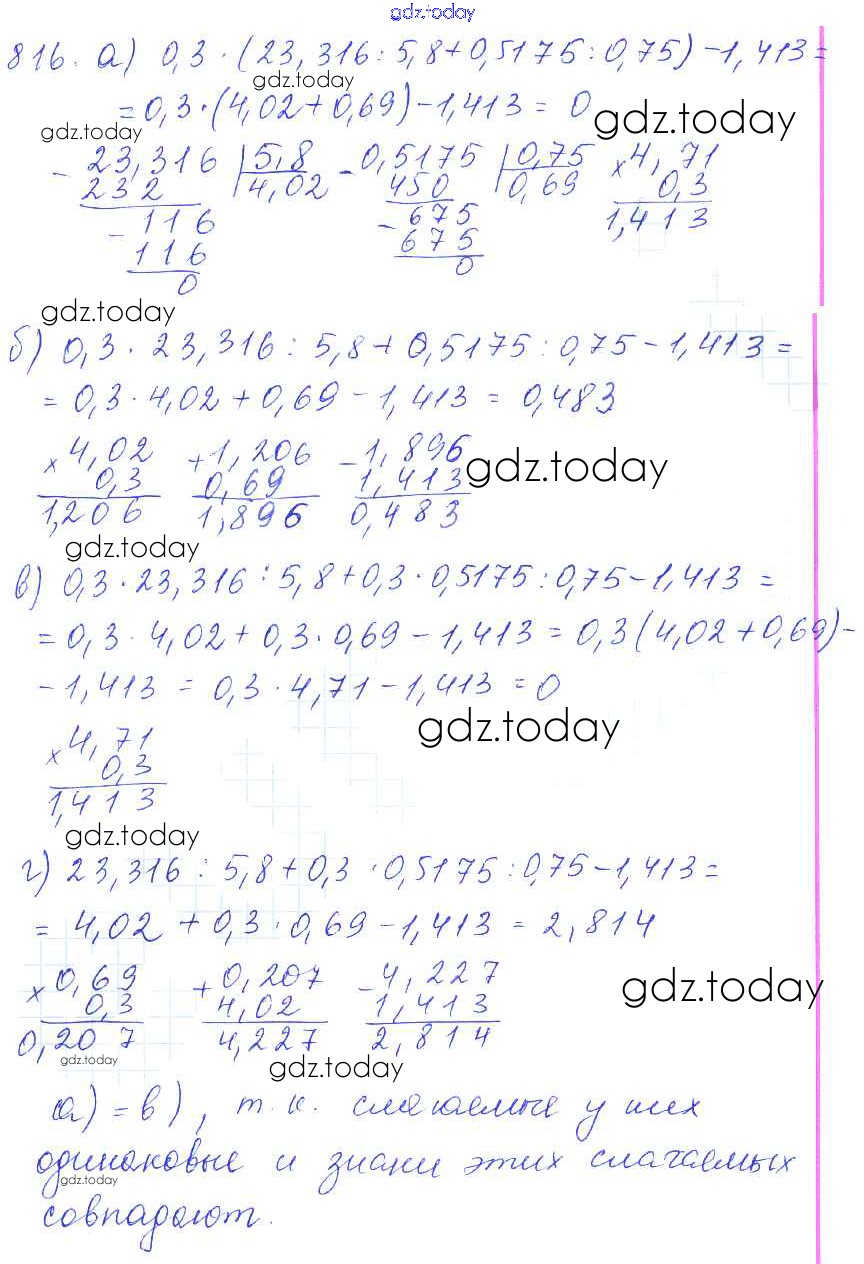 gdz.today
816. а) 0,3 · (23,316 : 5,8 + 0,5175 : 0,75) - 1,413 =
gdz.today
= 0,3 · (4,02 + 0,69) - 1,413 = 0
gdz.today gdz.today
- 23,316 | 5,8 - 0,5175 | 0,75 × 4,71
232 4,02 450 0,69 0,3
- 116 - 675 1,413
116 675
0 0
gdz.today
б) 0,3 · 23,316 : 5,8 + 0,5175 : 0,75 - 1,413 =
= 0,3 · 4,02 + 0,69 - 1,413 = 0,483
× 4,02 + 1,206 - 1,896
gdz.today
0,3 0,69 1,413
1,206 1,896 0,483
gdz.today
в) 0,3 · 23,316 : 5,8 + 0,3 · 0,5175 : 0,75 - 1,413 =
= 0,3 · 4,02 + 0,3 · 0,69 - 1,413 = 0,3 (4,02 + 0,69) -
- 1,413 = 0,3 · 4,71 - 1,413 = 0
gdz.today
× 4,71
0,3
1,413
gdz.today
г) 23,316 : 5,8 + 0,3 · 0,5175 : 0,75 - 1,413 =
= 4,02 + 0,3 · 0,69 - 1,413 = 2,814
× 0,69 + 0,207 - 4,227
gdz.today
0,3 4,02 1,413
0,207 4,227 2,814
gdz.today
gdz.today
а) = в), т.к. слагаемые у них
одинаковые и знаки этих слагаемых
gdz.today
совпадают.